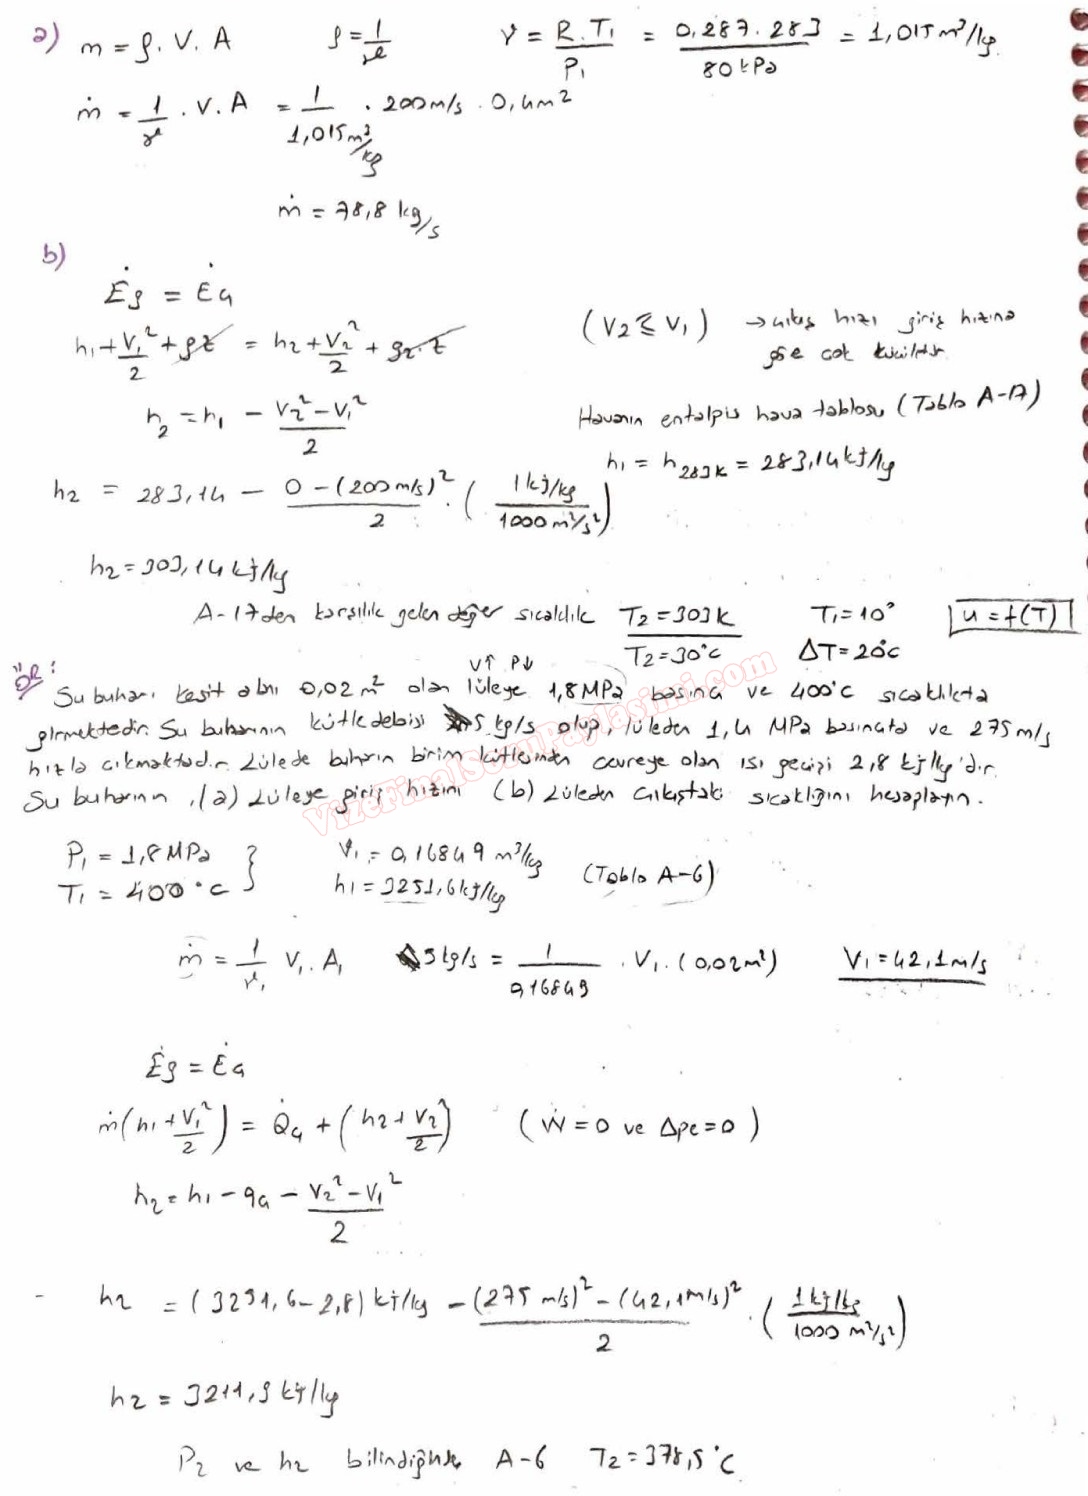 a) m = ρ . V. A    ρ = 1/𝓋    𝓋 = R.T₁/P₁ = 0,287.283/80 kPa = 1,015 m³/kg
ṁ = 1/𝓋 . V. A = 1/1,015 m³/kg . 200 m/s . 0,4 m²
ṁ = 78,8 kg/s
b)
Ėg = Ėç
h₁ + V₁²/2 + gz = h₂ + V₂²/2 + g₂.z    (V₂ ≤ V₁) → çıkış hızı giriş hızına
göre çok küçüktür.
h₂ = h₁ - V₂² - V₁²/2    Havanın entalpisi hava tablosu (Tablo A-17)
h₁ = h283K = 283,14 kJ/kg
h₂ = 283,14 - 0 - (200 m/s)²/2 . (1 kJ/kg / 1000 m²/s²)
h₂ = 303,14 kJ/kg
A-17den karşılık gelen değer sıcaklık T₂ = 303K    T₁ = 10°    u = f(T)
T₂ = 30°C    ΔT = 20°C
V↑ P↓
ÖR: Su buharı kesit alanı 0,02 m² olan lüleye 1,8 MPa basınç ve 400°C sıcaklıkta
girmektedir. Su buharının kütle debisi 5 kg/s olup, lüleden 1,4 MPa basınçta ve 275 m/s
hızla çıkmaktadır. Lülede buharın birim kütlesinden çevreye olan ısı geçişi 2,8 kJ/kg'dır.
Su buharının, (a) Lüleye giriş hızını (b) Lüleden çıkıştaki sıcaklığını hesaplayın.
VizeFinalSoruPaylasimi.com
P₁ = 1,8 MPa }    𝓋₁ = 0,16849 m³/kg
T₁ = 400 °C }    h₁ = 3251,6 kJ/kg    (Tablo A-6)
ṁ = 1/𝓋₁ V₁. A₁    5 kg/s = 1/0,16849 . V₁. (0,02 m²)    V₁ = 42,1 m/s
Ėg = Ėç
ṁ(h₁ + V₁²/2) = Q̇ç + (h₂ + V₂²/2)    (Ẇ = 0 ve Δpe = 0)
h₂ = h₁ - qç - V₂² - V₁²/2
h₂ = (3251,6 - 2,8) kJ/kg - (275 m/s)² - (42,1 m/s)²/2 . (1 kJ/kg / 1000 m²/s²)
h₂ = 3211,9 kJ/kg
P₂ ve h₂ bilindiğinde A-6 T₂ = 378,5 °C